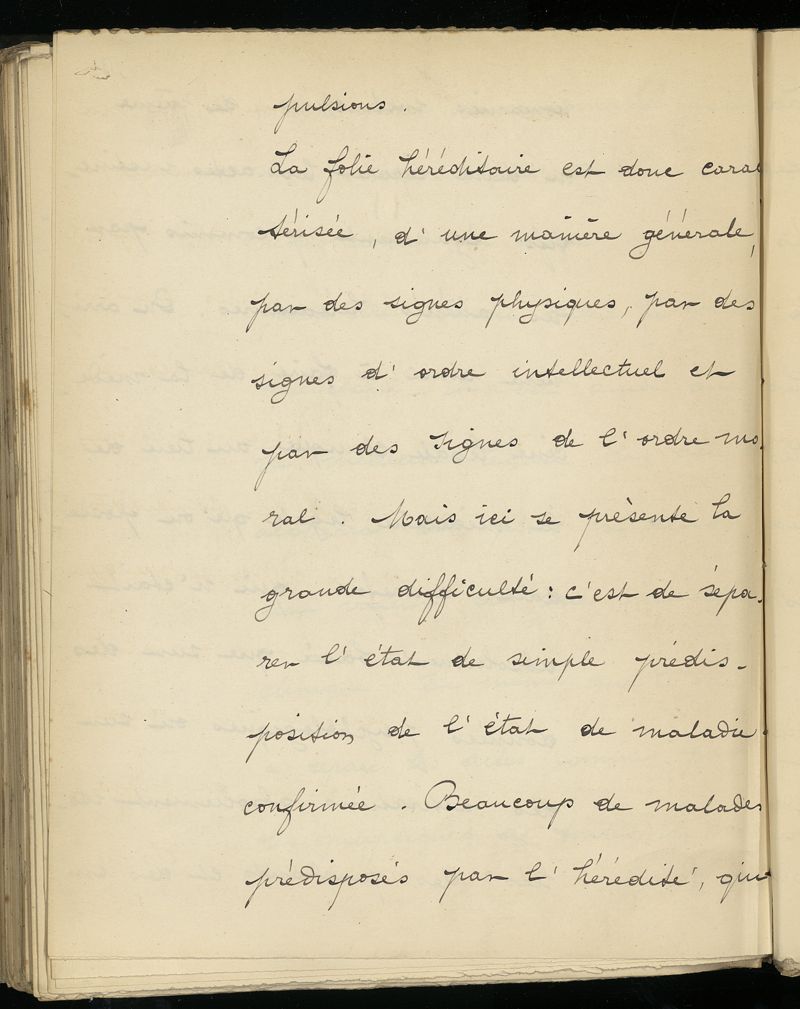 pulsions.
La folie héréditaire est donc carac
térisée, d'une manière générale,
par des signes physiques, par des
signes d'ordre intellectuel et
par des signes de l'ordre mo-
ral. Mais ici se présente la
grande difficulté : c'est de sépa-
rer l'état de simple prédis-
position de l'état de maladie
confirmée. Beaucoup de malades
prédisposés par l'hérédité, qui